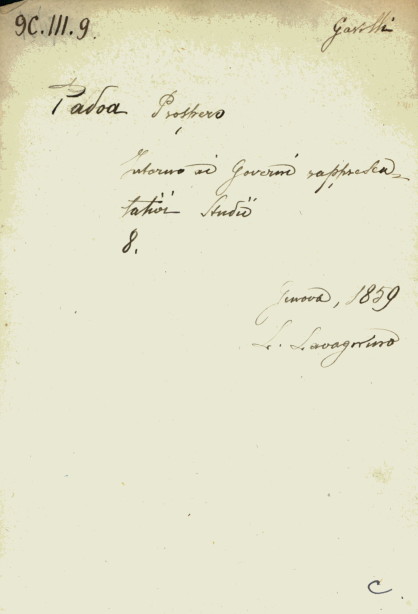 9C.III.9. Gavotti
Padoa Prospero
Intorno ai Governi rappresen-
tativi Studii
8.
Genova, 1859
L. Lavagnino
C